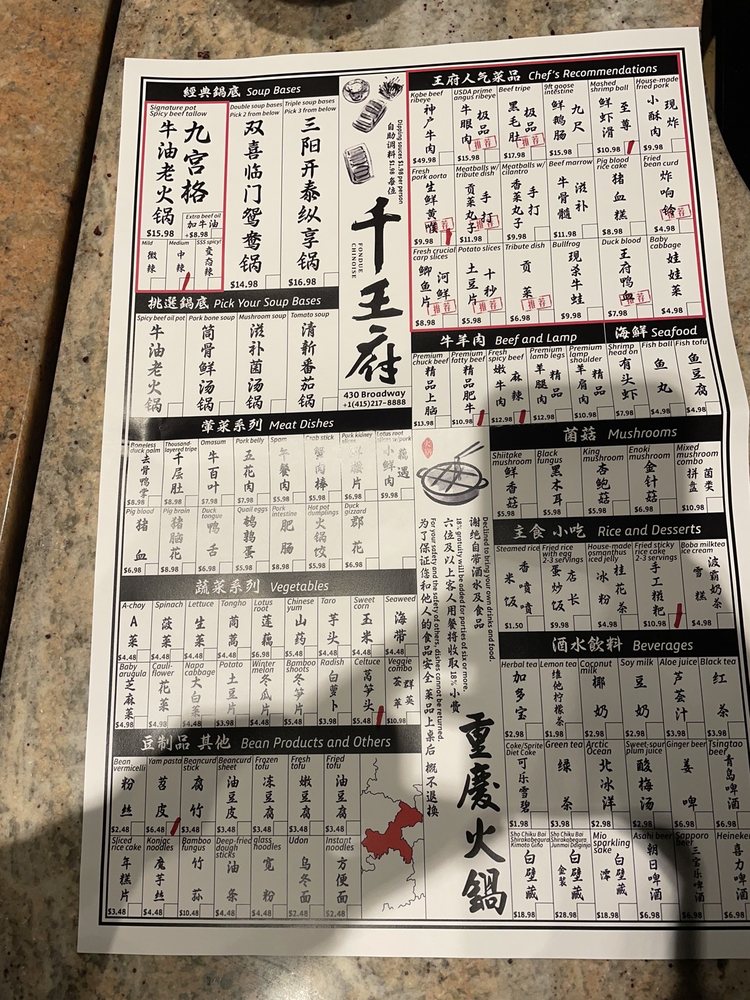 經典鍋底 Soup Bases
Signature pot
Spicy beef tallow
九宫格
牛油老火锅
$15.98
Extra beef oil
加牛油
+$8.98
Mild
微辣
Medium
中辣
SSS spicy!
变态辣
Double soup bases
Pick 2 from below
双喜临门鸳鸯锅
$14.98
Triple soup bases
Pick 3 from below
三阳开泰纵享锅
$16.98
Dipping sauces $1.98 per person
自助调料 $1.98 每位
千王府
FONDUE
CHINOISE
430 Broadway
+1(415)217-8888
挑選鍋底 Pick Your Soup Bases
Spicy beef oil pot
牛油老火锅
Pork bone soup
筒骨鲜汤锅
Mushroom soup
滋补菌汤锅
Tomato soup
清新番茄锅
王府人气菜品 Chef's Recommendations
Kobe beef ribeye
神户牛肉
$49.98
USDA prime angus ribeye
极品牛眼肉
推荐
$15.98
Beef tripe
极品黑毛肚
推荐
$17.98
9ft goose intestine
九尺鲜鹅肠
$15.98
Mashed shrimp ball
至尊鲜虾滑
$10.98
House-made fried pork
现炸小酥肉
$9.98
Fresh pork aorta
生鲜黄喉
$9.98
Meatballs w/ tribute dish
手打贡菜丸子
推荐
$11.98
Meatballs w/ cilantro
手打香菜丸子
$9.98
Beef marrow
滋补牛骨髓
$11.98
Pig blood rice cake
猪血糕
$8.98
Fried bean curd
炸响铃
推荐
$4.98
Fresh crucial carp slices
河鲜鲫鱼片
推荐
$8.98
Potato slices
十秒土豆片
推荐
$5.98
Tribute dish
贡菜
推荐
$6.98
Bullfrog
现杀牛蛙
$9.98
Duck blood
王府鸭血
推荐
$7.98
Baby cabbage
娃娃菜
$4.98
牛羊肉 Beef and Lamp
Premium chuck beef
精品上脑
$13.98
Premium fatty beef
精品肥牛
$10.98
Fresh spicy beef
麻辣嫩牛肉
$12.98
Premium lamb legs
精品羊腿肉
$12.98
Premium lamp shoulder
精品羊肩肉
$14.98
海鲜 Seafood
Shrimp head on
有头虾
$7.98
Fish ball
鱼丸
$4.98
Fish tofu
鱼豆腐
$4.98
葷菜系列 Meat Dishes
Boneless duck palm
去骨鸭掌
$8.98
Thousand-layered tripe
千层肚
$8.98
Omasum
牛百叶
$7.98
Pork belly
五花肉
$7.98
Spam
午餐肉
$5.98
Crab stick
蟹肉棒
$5.98
Park kidney
腰片
$6.98
Lotus root
藕遇小鲜肉
$9.98
Pig blood
猪血
$5.98
Pig brain
猪脑花
Duck tongue
鸭舌
Quail eggs
鹌鹑蛋
$5.98
Pork intestine
肥肠
$8.98
Hot pot dumplings
火锅饺
$5.98
Duck gizzard
郡花
$6.98
菌菇 Mushrooms
Shiitake mushroom
鲜香菇
$5.98
Black fungus
黑木耳
$5.98
King mushroom
杏鲍菇
$5.98
Enoki mushroom
金针菇
$6.98
Mixed mushroom combo
菌类拼盘
$10.98
主食 小吃 Rice and Desserts
Steamed rice
香喷喷米饭
$1.50
Fried rice with egg 2-3 servings
店长蛋炒饭
$9.98
House-made osmanthus iced jelly
桂花茶冰粉
$4.98
Fried sticky rice cake 2-3 servings
手工糍粑
$10.98
Boba milktea ice cream
波霸奶茶雪糕
$4.98
蔬菜系列 Vegetables
A-choy
A菜
$4.48
Spinach
菠菜
$4.48
Lettuce
生菜
$4.48
Tongho
茼蒿
$4.48
Lotus root
莲藕
$6.98
Chinese yum
山药
$5.48
Taro
芋头
$4.48
Sweet corn
玉米
$4.48
Seaweed
海带
$4.48
Baby arugula
芝麻菜
$4.98
Cauli-flower
花菜
$4.98
Napa cabbage
大白菜
$4.48
Potato
土豆片
$4.48
Winter melon
冬瓜片
$4.48
Bamboo shoots
冬笋片
$4.48
Radish
白萝卜
$3.98
Celtuce
莴笋头
$5.48
Veggie combo
群英荟萃
$10.98
豆制品 其他 Bean Products and Others
Bean vermicelli
粉丝
$2.48
Yam pasta
苕皮
$6.48
Beancurd stick
腐竹
$3.48
Beancurd sheet
油豆皮
$3.48
Frozen tofu
冻豆腐
$3.48
Fresh tofu
嫩豆腐
$3.48
Fried tofu
油豆腐
$3.48
Sliced rice cake
年糕片
$3.48
Konjac noodles
魔芋丝
$4.48
Bamboo fungus
竹荪
$10.48
Deep-fried dough sticks
油条
$4.48
glass noodles
宽粉
$2.48
Udon
乌冬面
$2.48
Instant noodles
方便面
$2.48
Declined to bring your own drinks and food.
谢绝自带酒水及食品
18% gratuity will be added for parties of six or more.
六位及以上客人用餐将收取18%小费
for your safety and the safety of others, dishes cannot be returned.
为了保证您和他人的食品安全 菜品上桌后 概不退换
重慶火鍋
酒水飲料 Beverages
Herbal tea
加多宝
$2.98
Lemon tea
维他柠檬茶
$1.98
Coconut milk
椰奶
$2.98
Soy milk
豆奶
$2.98
Aloe juice
芦荟汁
$3.98
Black tea
红茶
$3.98
Coke/Sprite Diet Coke
可乐雪碧
$1.98
Green tea
绿茶
$2.98
Arctic Ocean
北冰洋
$2.98
Sweet-sour plum juice
酸梅汤
$2.98
Ginger beer
姜啤
$4.98
Tsingtao beer
青岛啤酒
Sho Chiku Bai Shirakabegura Kimoto Ginjo
白壁藏
$18.98
Sho Chiku Bai Shirakabegura Junmai Daiginjo
白壁藏 金装
$28.98
Mio sparkling sake
白壁藏 澪
$18.98
Asahi beer
朝日啤酒
$6.98
Sapporo beer
三宝乐啤酒
$6.98
Heineken
喜力啤酒
$6.98